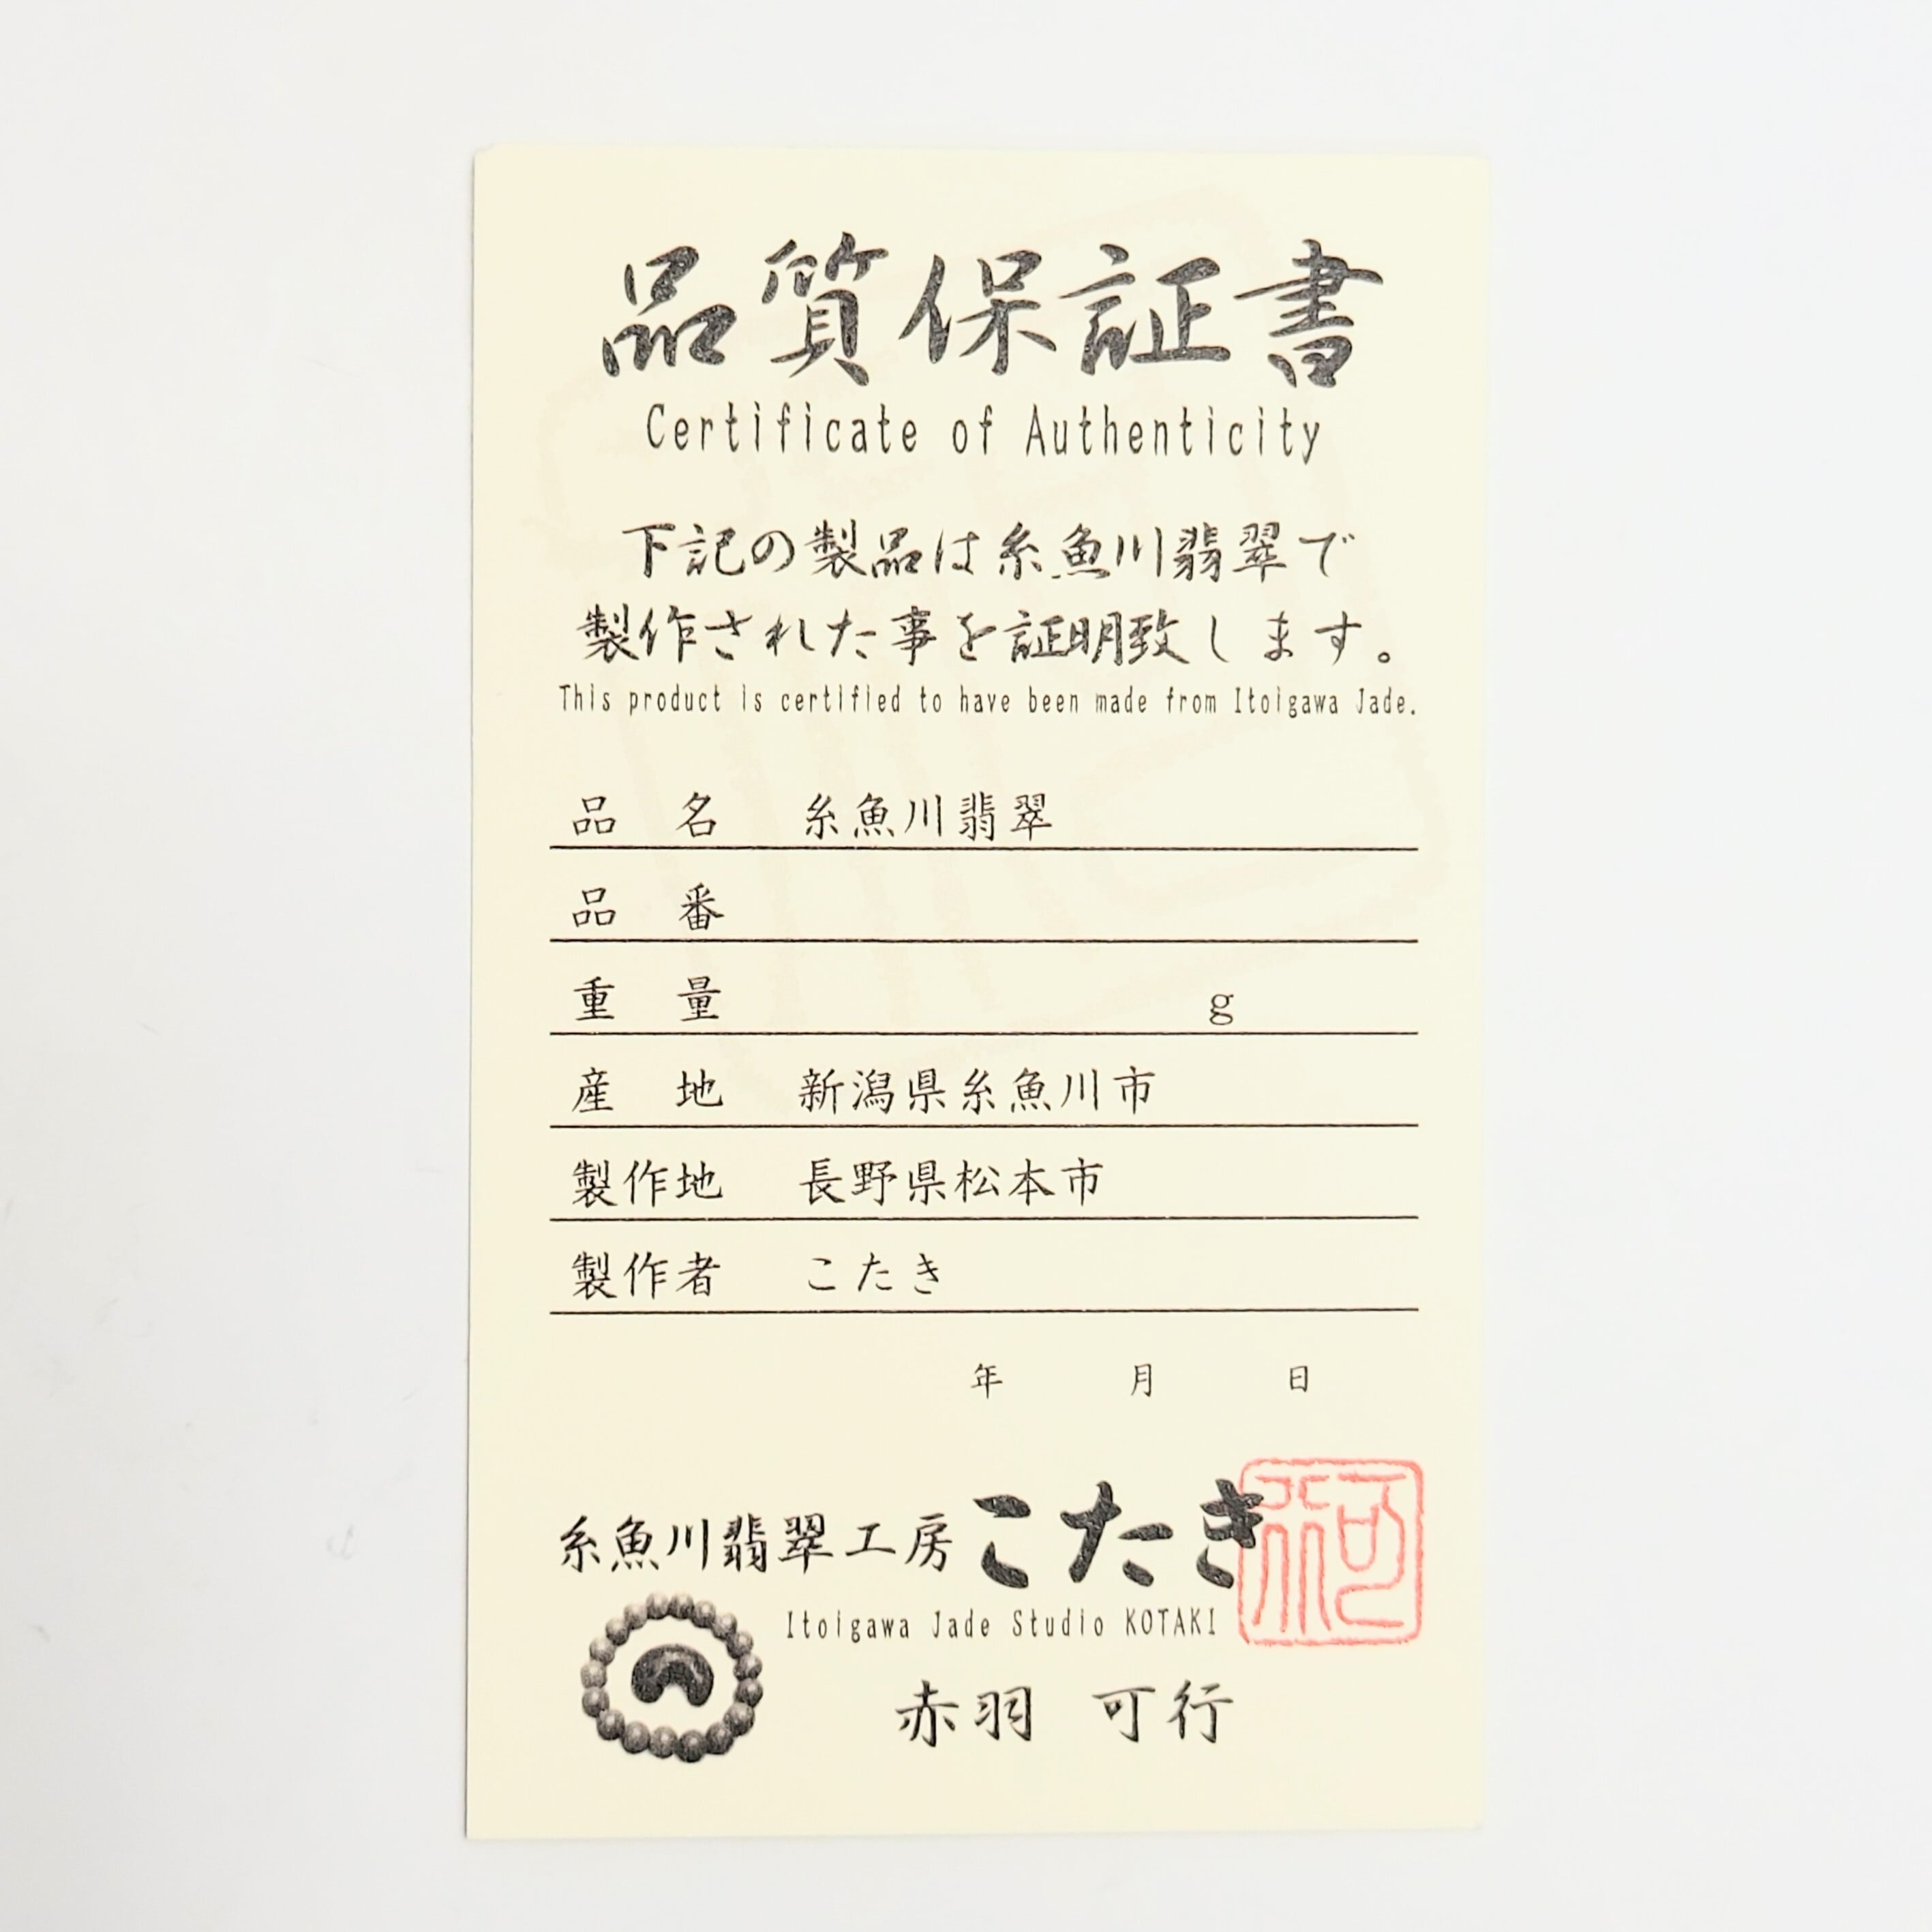 品質保証書
Certificate of Authenticity
下記の製品は糸魚川翡翠で
製作された事を証明致します。
This product is certified to have been made from Itoigawa Jade.
品 名 糸魚川翡翠
品 番
重 量 g
産 地 新潟県糸魚川市
製作地 長野県松本市
製作者 こたき
年 月 日
糸魚川翡翠工房 こたき
Itoigawa Jade Studio KOTAKI
赤羽 可行